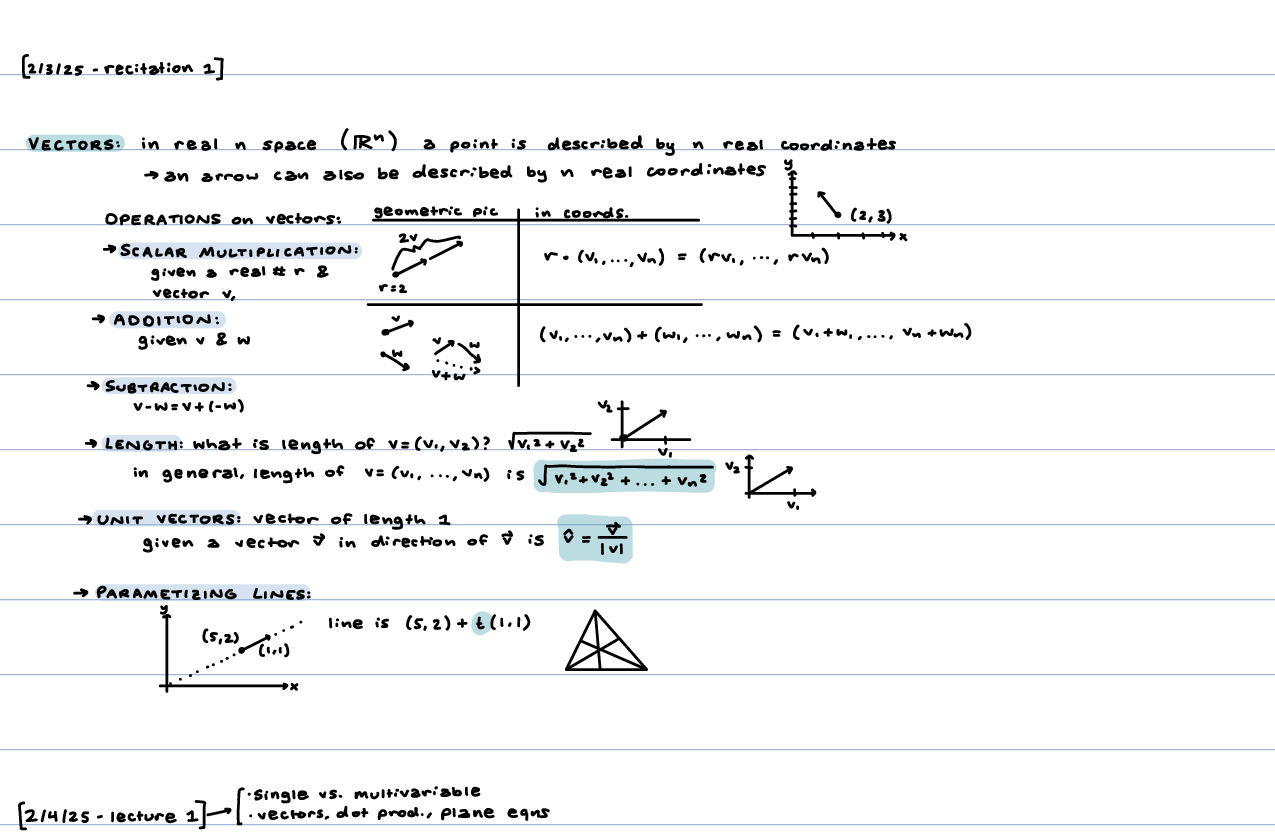 [2/3/25 - recitation 1]
VECTORS: in real n space (ℝⁿ) a point is described by n real coordinates
→ an arrow can also be described by n real coordinates
y
(2,3)
x
OPERATIONS on vectors:
geometric pic
in coords.
→ SCALAR MULTIPLICATION:
given a real # r &
vector v,
2v
r=2
r·(v₁,...,vₙ) = (rv₁, ..., rvₙ)
→ ADDITION:
given v & w
v
w
v
w
v+w
(v₁,...,vₙ) + (w₁, ..., wₙ) = (v₁+w₁,..., vₙ+wₙ)
→ SUBTRACTION:
v-w=v+(-w)
→ LENGTH: what is length of v=(v₁,v₂)? √v₁²+v₂²
v₂
v₁
in general, length of v=(v₁, ...,vₙ) is √v₁²+v₂²+...+vₙ²
v₂
v₁
→ UNIT VECTORS: vector of length 1
given a vector v⃗ in direction of v⃗ is v̂ = v⃗/|v|
→ PARAMETIZING LINES:
y
(5,2)
(1,1)
x
line is (5,2) + t(1,1)
[2/4/25 - lecture 1] →
· Single vs. multivariable
· vectors, dot prod., plane eqns